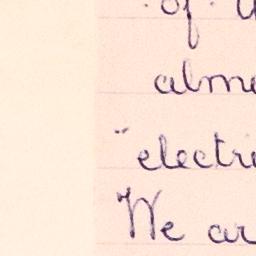 of
alm
"electri
We ar